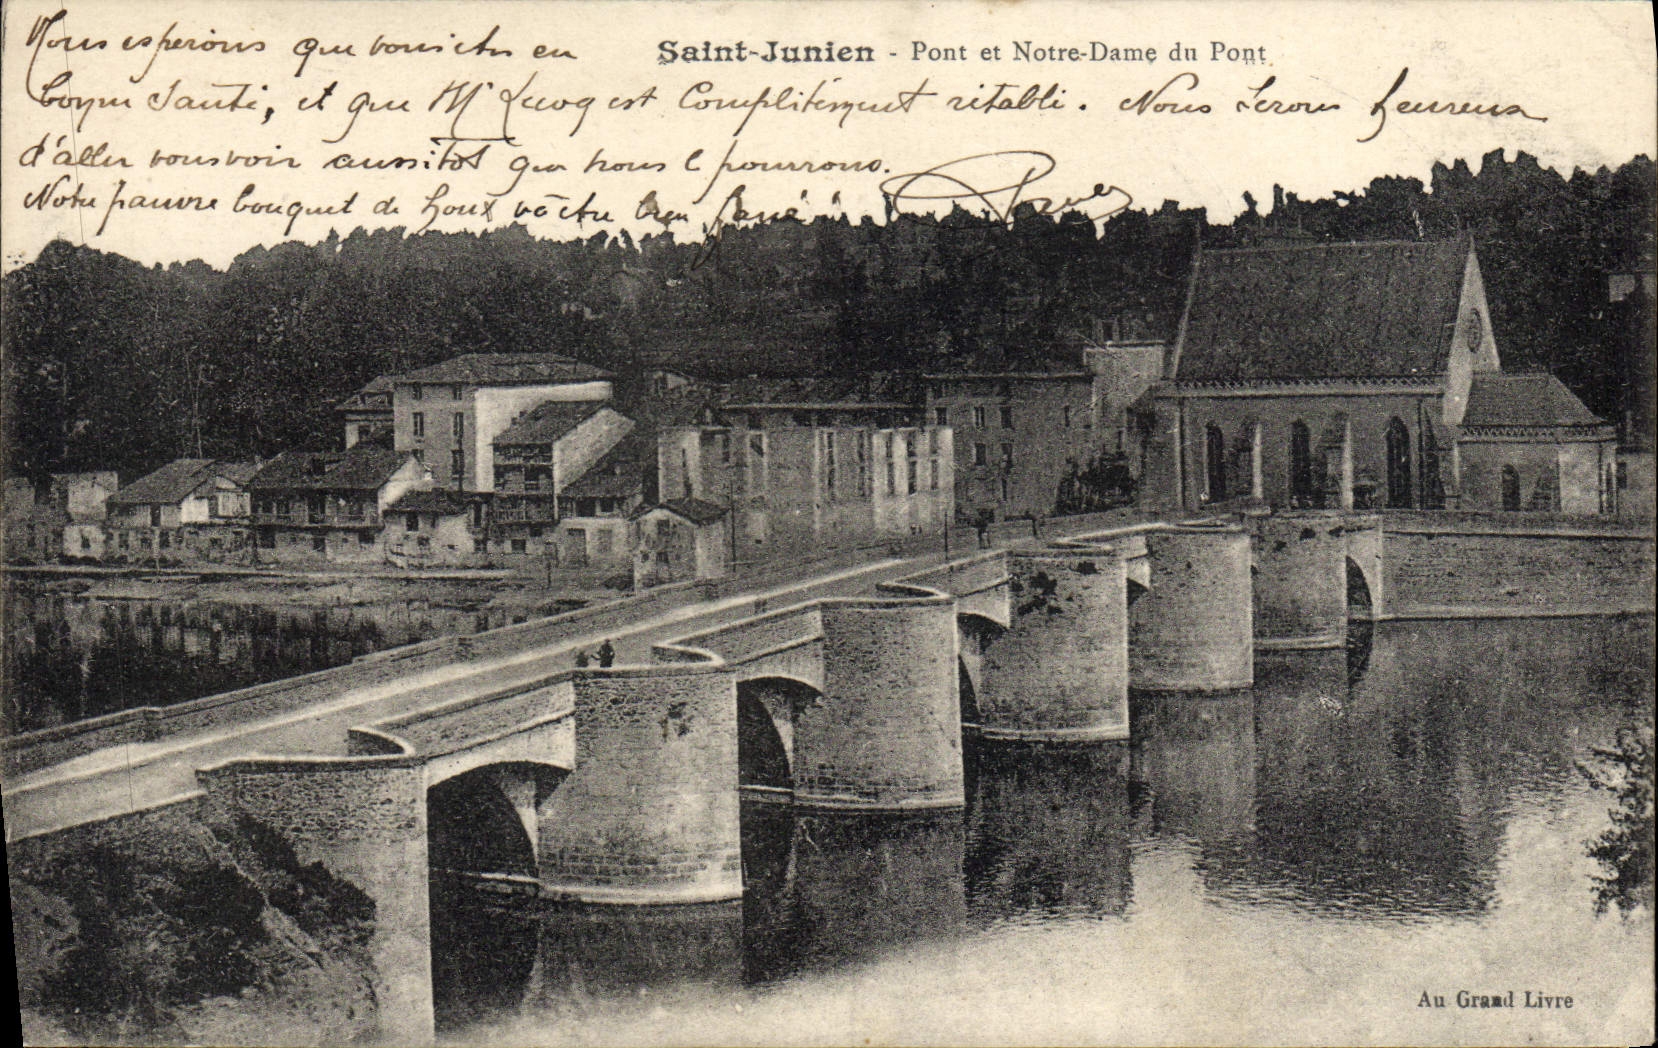 Nous esperons que vous êtes en
Saint-Junien - Pont et Notre-Dame du Pont
bonne Santé, et que Mr est Complètement rétabli. Nous Serons heureux
d'aller vous voir aussitôt que nous l pourrons.
Notre pauvre bouquet de houx va être bien fané
Au Grand Livre